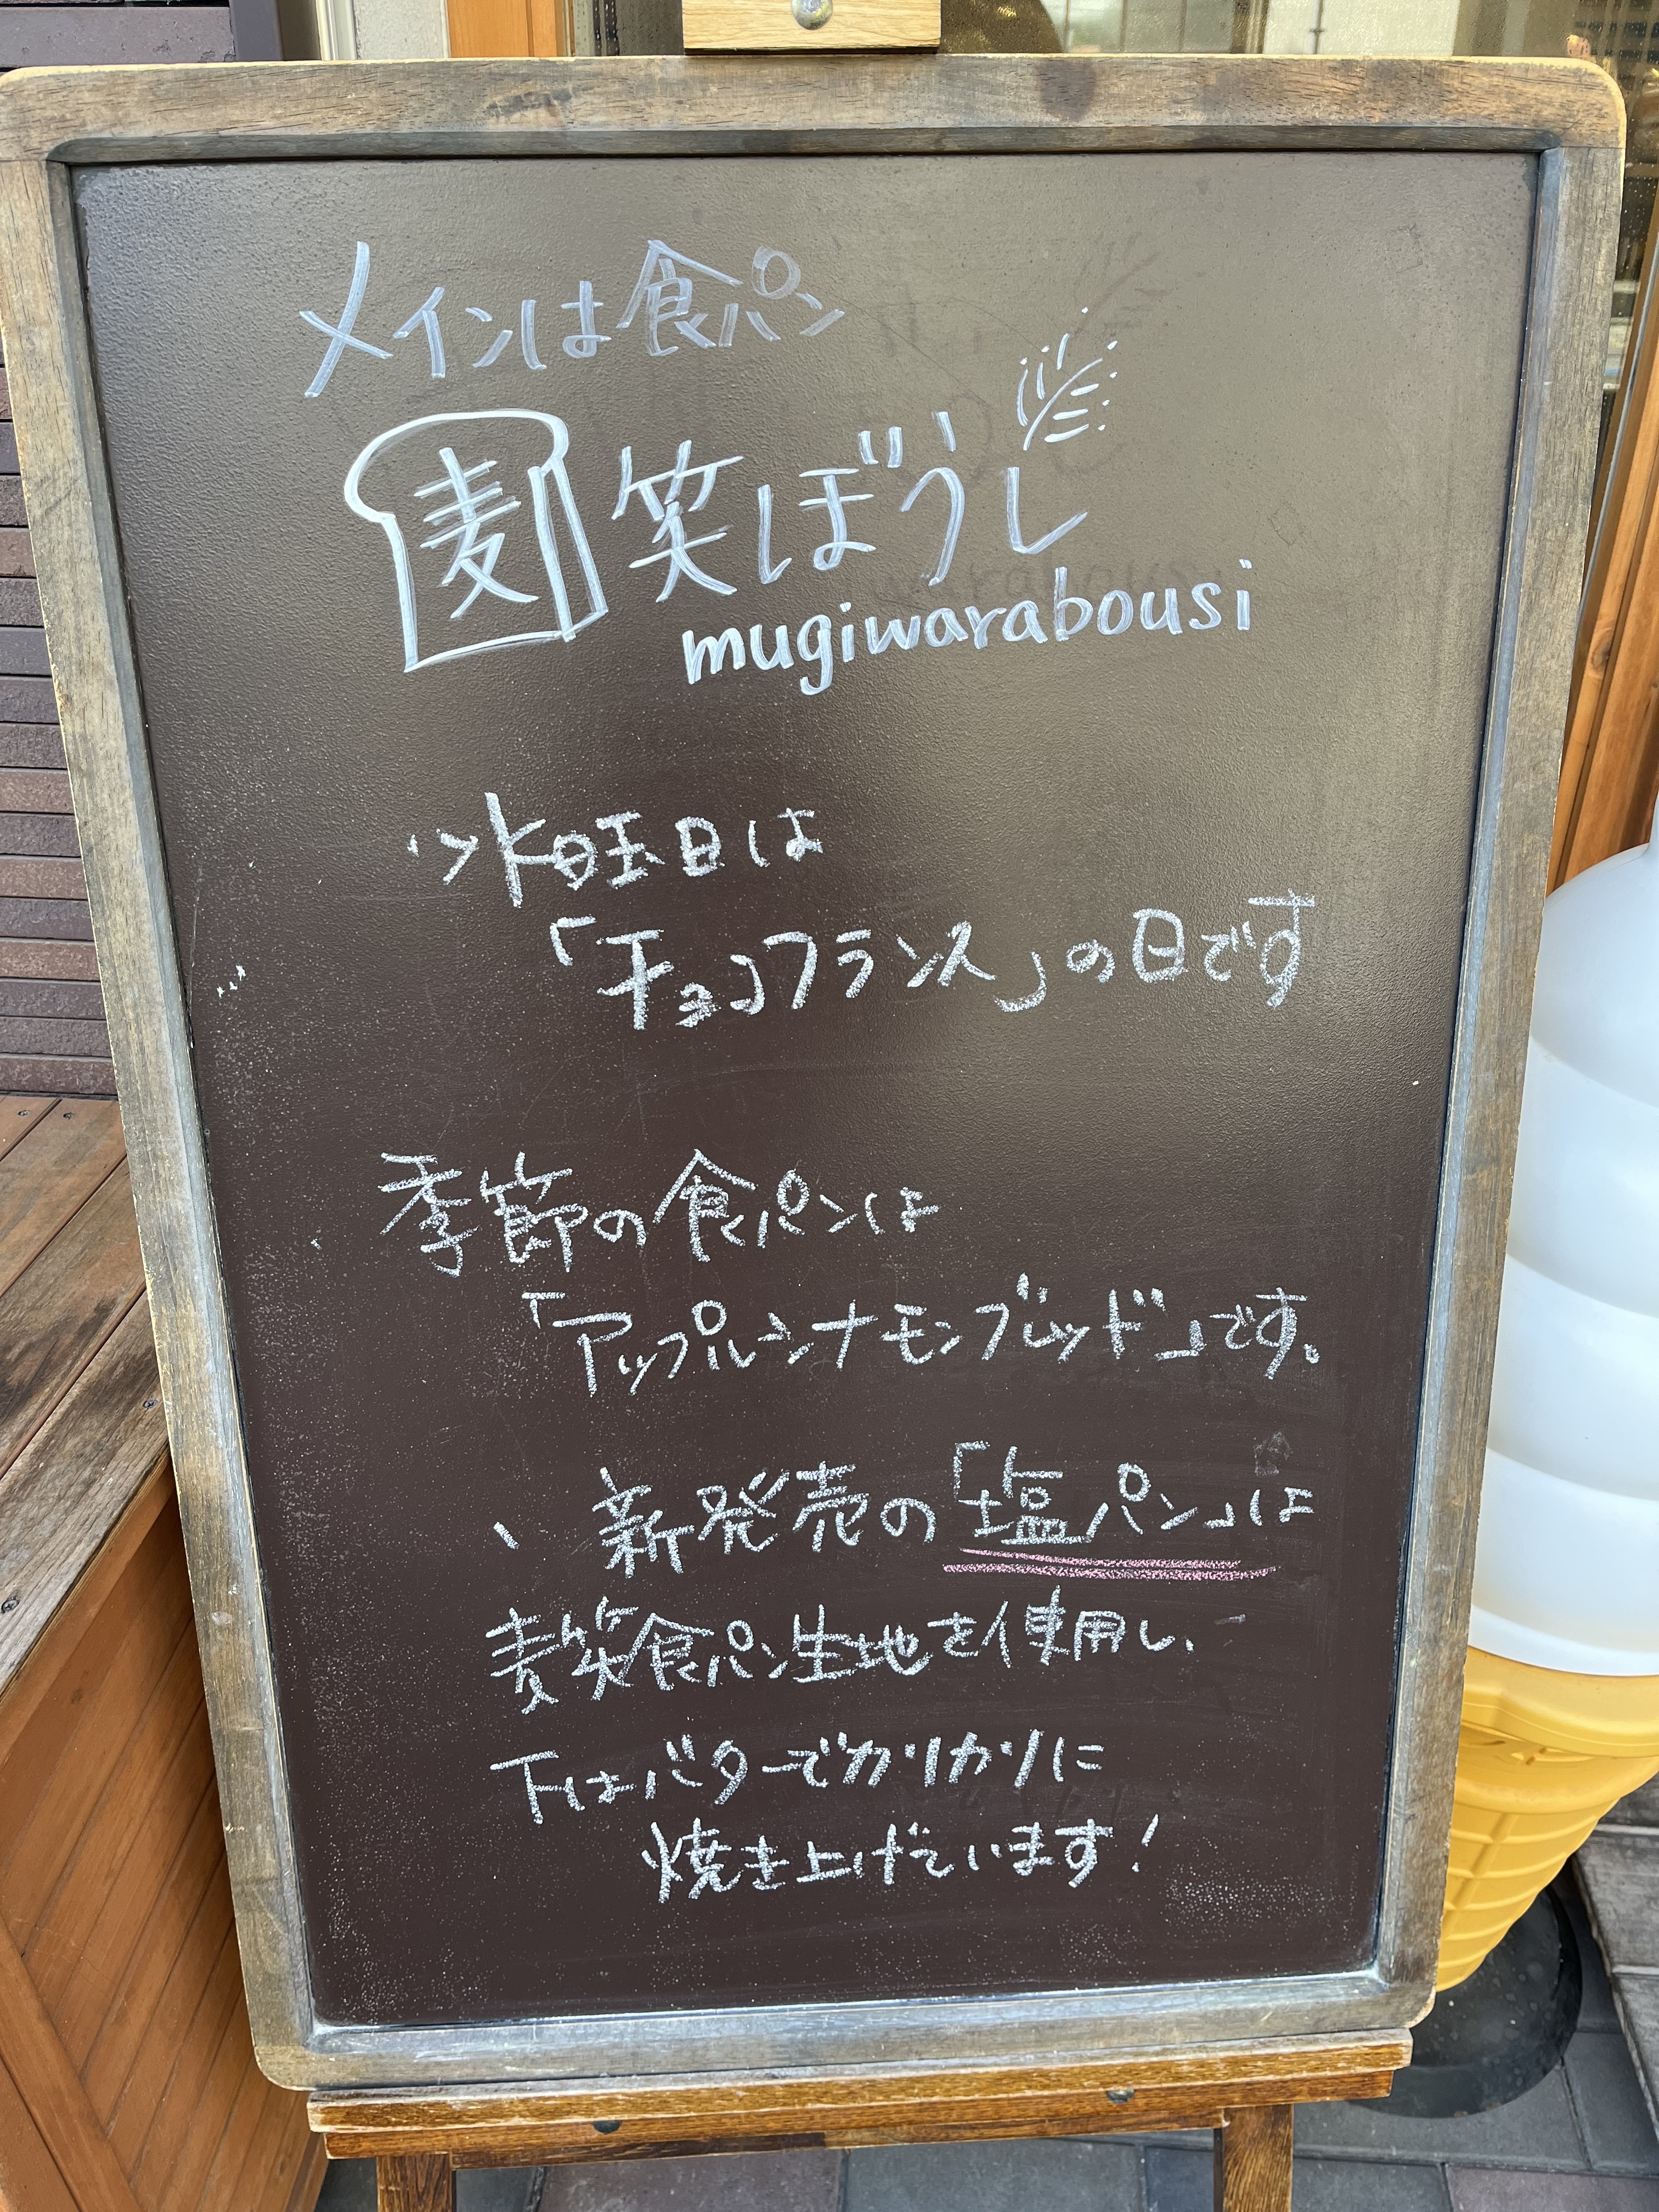 メインは食パン
麦笑ぼうし
mugiwarabousi
水曜日は
「チョコフランス」の日です
季節の食パンは
「アップルシナモンブレッド」です。
新発売の「塩パン」は
麦笑食パン生地を使用し、
下はバターでカリカリに
焼き上げています!